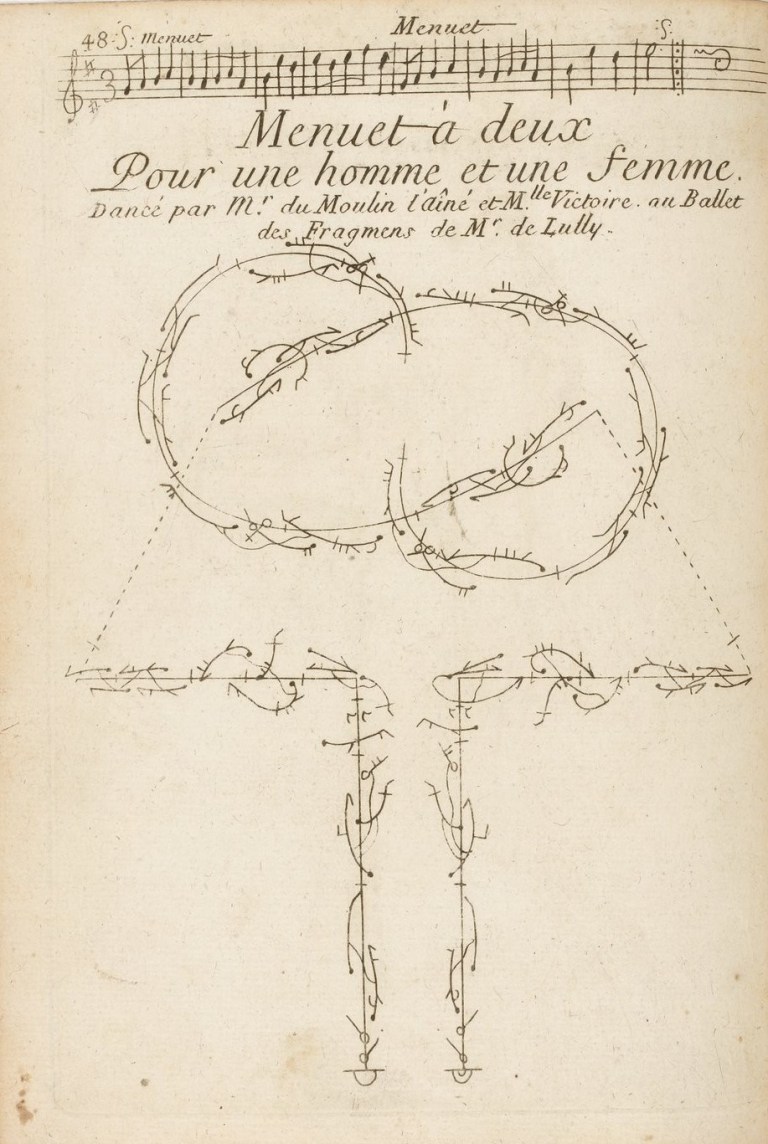 48 𝄋 Menuet Menuet 𝄋
3
Menuet à deux
Pour une homme et une femme.
Dancé par M.r du Moulin l'aîné et M.lle Victoire. au Ballet
des Fragmens de Mr. de Lully.